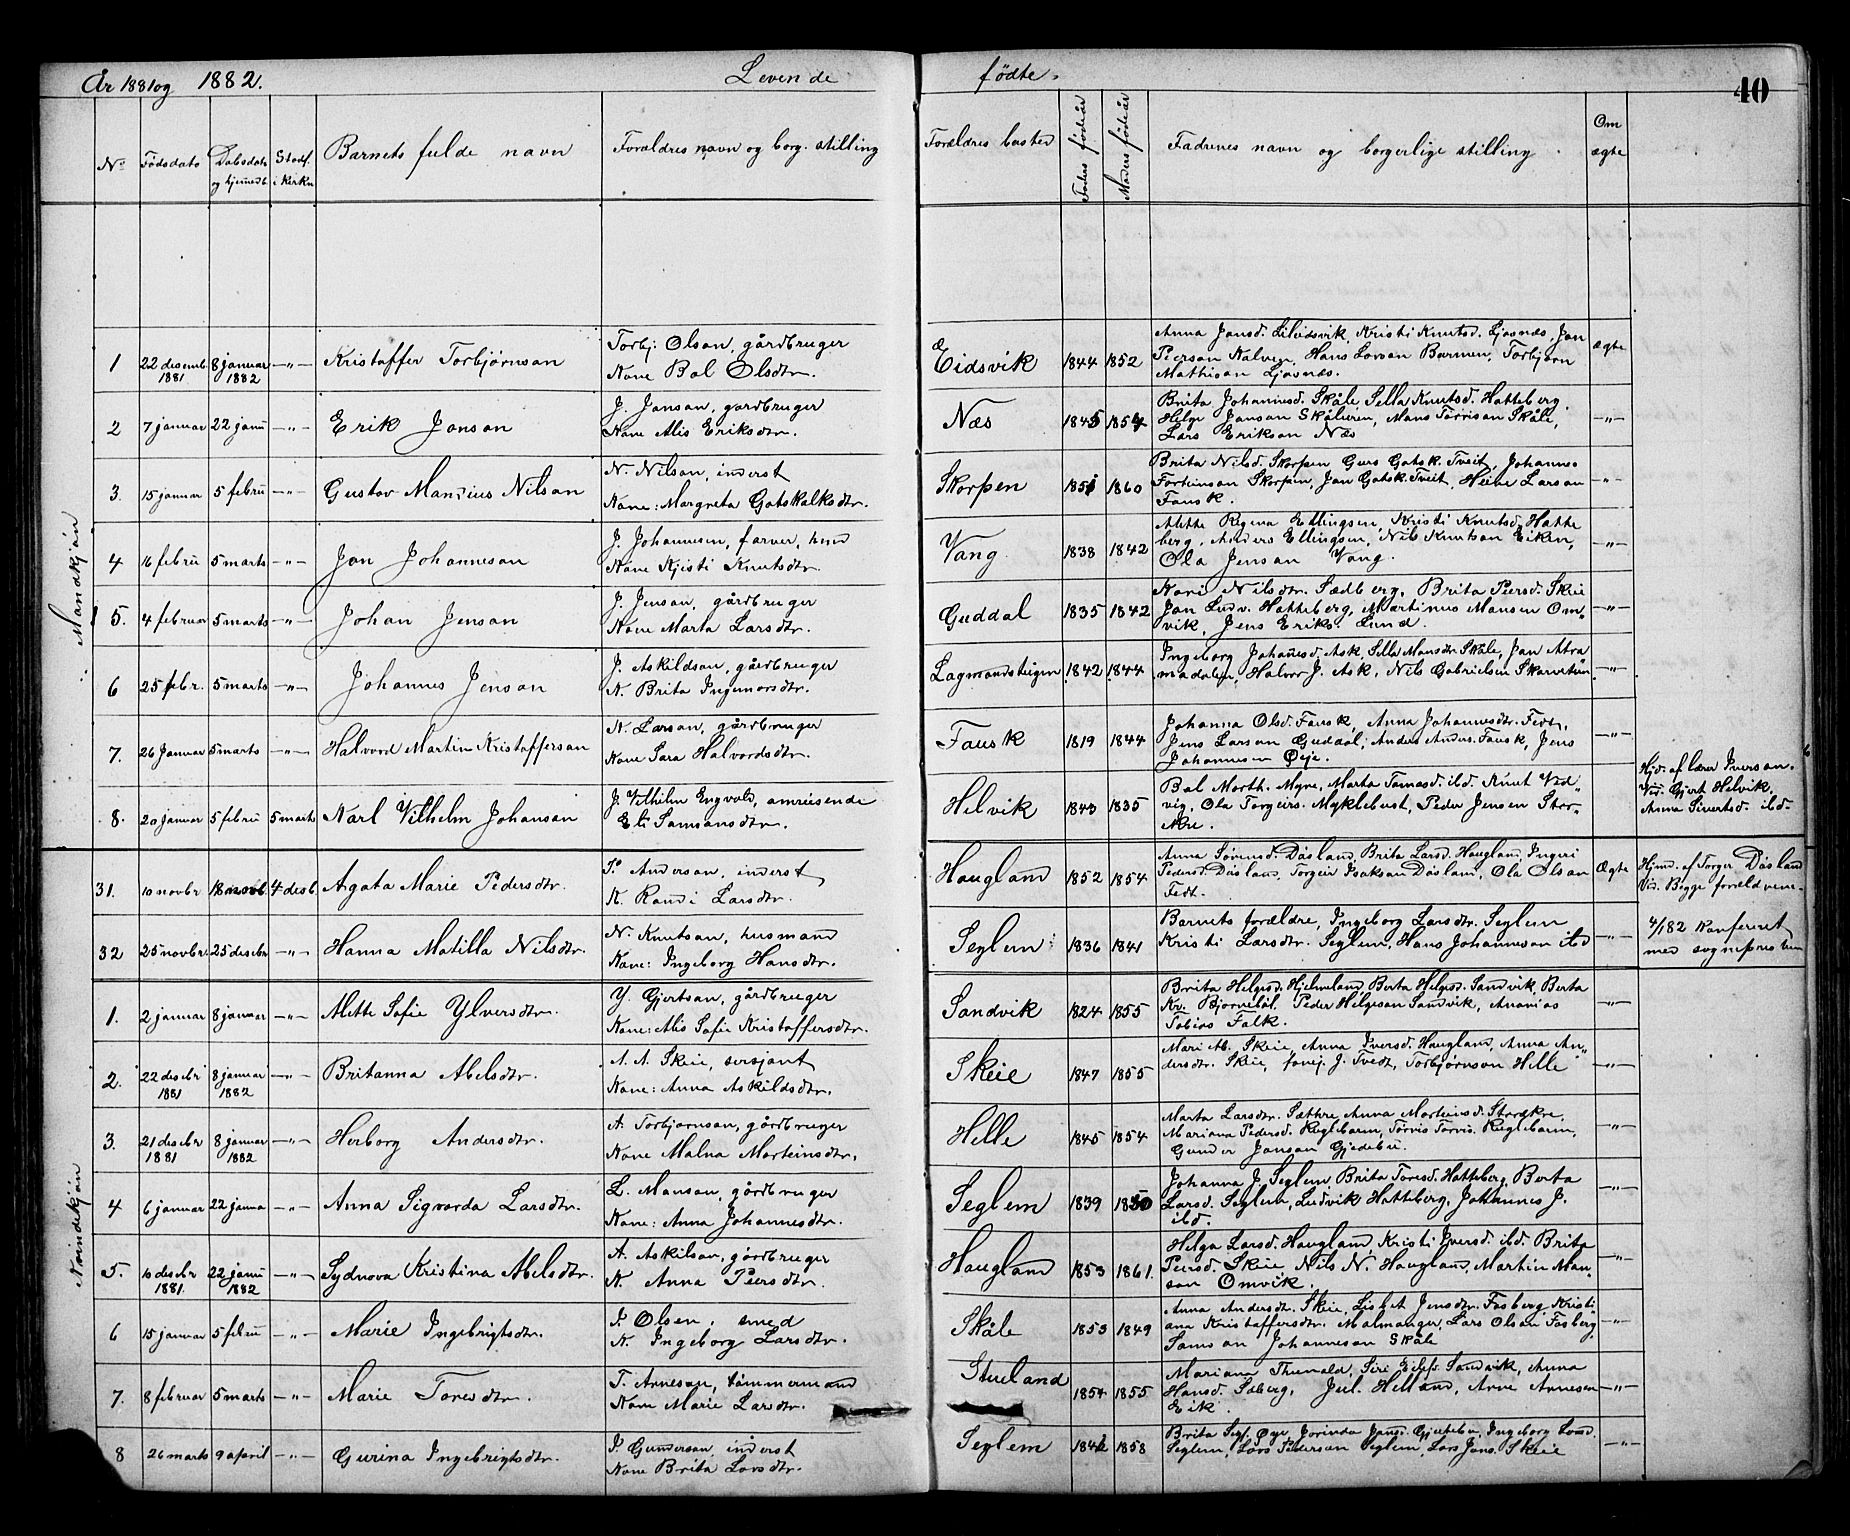 År 1881 og 1882. Levende fødte. 40
No Fødsdato Dåbsdato og hjemmedb. Stadf. i kirken Barnets fulde navn Forældres navn og borg. stilling Forældres bosted Faders fødeår Moders fødeår Fadrenes navn og borgerlige stilling. Om ægte
Mandkjøn
1 22 desemb. 1881 8 januar 1882 -„- Kristoffer Torbjørnson Torbj: Olson, gårdbruger Kone Bol Olsdtr. Eidsvik 1844 1852 Anna Jonsd. Lilvidsvik, Kristi Knutsd. Ljosnæs, Jon ægte
Pierson Nalven, Hans Larson Barmen, Torbjørn
Mathison Ljosnæs.
2 7 januar 22 janu -„- Erik Jonson J. Jonson, gardbruger Kone Alis Eriksdtr. Næs 1845 1854 Brita Johannesd. Skåle Sella Knutsd. Hatteberg, -„-
Helge Jonson Skålviin, Mons Torrison Skåle,
Lars Erikson Næs
3. 15 januar 5 febru -„- Gustav Mansius Nilson N. Nilson, inderst Kone: Margreta Gotskalksdtr. Skorpen 1851 1860 Brita Nilsd. Skorpen Guro Gotsk. Tveit, Johannes -„-
Forteinson Skorpen, Jon Gotsk. Tveit, Helie Larson
Fausk.
4 16 febru 5 marts -„- Jon Johanneson J. Johannesen, farver, hmd Kone Kjisti Knutsdtr. Vang 1838 1842 Mette Regina Ellingsen, Kristi Knutsd. Hatte -„-
berg, Anders Ellingsen, Nils Knutson Eiken,
Ola Jenson Vang.
5. 4 februar 5 marts -„- Johan Jenson J. Jenson, gårdbruger Kone Marta Larsdtr. Guddal 1835 1842 Kari Nilsdtr. Sædberg, Brita Piersd. Skeie -„-
Jon Ludv. Hatteberg, Martinus Monsen Om„
vik, Jens Eriks. Lund.
6 25 febr. 5 marts -„- Johannes Jenson J. Askildson, gårdbruger K. Brita Ingemorsdtr. Lagmandsteigen 1842 1844 Ingeborg Johanesd. Ask, Sella Monsdtr Skåle, Jon Abra -„-
madalen, Halvor J. Ask, Nils Gabrielsen Skarvetun
7. 26 januar 5 marts -„- Halvord Martin Kristofferson K. Larson, gårdbruger Kone Sara Halvordsdtr. Fausk 1819 1844 Johanna Olsd. Fausk, Anna Johannesdtr. Fedt, -„-
Jens Larson Guddal, Anders Anders. Fausk, Jens
Johannesen Øeje.
8. 20 januar 5 febru 5 marts Karl Vilhelm Johanson J. Vilhelm Engvold, omreisende Eli Samsonsdtr. Helvik 1843 1835 Bol Morth. Myre, Marta Tomasd. ibd. Knut Ved -„-
vig, Ola Torgeirs. Myklebust, Peder Jensen Stor„
Akre.
Hjd. af lærer Iverson.
Vid. Gjert Helvik,
Anna Sivertsd. ibd.
31. 10 novbr 18 novb 4 desb. Agata Marie Pedersdtr. P. Anderson, inderst K. Randi Larsdtr. Haugland 1852 1854 Anna Sørensd. Døsland, Brita Larsd. Haugland, Ingeri Ægte Hjmd. af Torger Døsland
Pedersd. Døsland, Torgeir Isakson Døsland, Ola Olson Vid. Begge forældrene.
Fedt.
32 25 novbr. 25 desbr -„- Hanna Matilla Nilsdtr. N. Knutson, husmand Kone: Ingeborg Hansdtr. Seglem 1836 1841 Barnets forældre, Ingeborg Larsdtr. Seglem -„- 4/1 82 Konfereret
Kristi Larsdtr. Seglem, Hans Johanneson ibd med sognepresten
Kvindekjøn
1. 2 januar 8 januar -„- Mette Sofie Ylversdtr. Y. Gjertson, gårdbruger Kone: Alis Sofie Kristoffersdtr. Sandvik 1824 1855 Brita Helgesd. Hjelmeland, Berta Helgesd. Sandvik, Berta -„-
Kv. Bjørnebøl, Peder Helgeson Sandvik, Ananias
Tobias Falk.
2. 22 desbr 1881 8 januar 1882 -„- Britanna Abelsdtr. A. A. Skeie, sersjant Kone: Anna Askildsdtr. Skeie 1847 1855 Mari Ab. Skeie, Anna Iversd. Haugland, Anna An„ -„-
dersdtr. Skeie, J. Tvedt, Torbjørnson Helle
3. 21 desbr 1881 8 januar 1882 -„- Herborg Andersdtr. A. Torbjornson, gårdbruger Kone Malna Morteinsdtr. Helle 1845 1854 Marta Larsdtr. Sæthre, Anna Morteinsd. Storækre, -„-
Mariana Pedersd. Røglebarm, Torvis Torvis. Røglebarm,
Gunder Jonson Gjedebu.
4 6 januar 22 janua -„- Anna Sigvarda Larsdtr. L. Monson, gårdbruger Kone: Anna Johannesdtr. Seglem 1839 1850 Johanna J. Seglem, Brita Toresd. Hatteberg, Berta -„-
Larsd. Seglem, Ludvik Hatteberg, Johannes J.
ibd.
5. 10 desbr 1881. 22 janu 1882 -„- Sydnova Kristina Abelsdtr. A. Askilson, gårdbruger K. Anna Piersdtr. Haugland 1853 1861. Helga Larsd. Haugland, Kristi Iversd. ibd. Brita -„-
Piersd. Skeie Nils N. Haugland, Martin Mon„
son Omvik.
6 15 januar 5 febru -„- Marie Ingebrigtsdtr. I. Olsen, smed K. Ingeborg Larsdtr. Skåle 1853 1849 Anna Andersdtr. Skeie, Lisbet Jensdtr. Fosberg, Kristi -„-
ana Kristoffersdtr. Malmanger, Lars Olson Fosberg,
Samson Johanneson Skåle
7. 8 februar 5 marts -„- Marie Toresdtr. T. Arneson, tømmermand Kone Marie Larsdtr. Stueland 1854 1855 Mariana Thunold, Siri Eilefs. Sandvik, Anna -„-
Hansd. Soberg, Juel Helland, Arne Arnesen
Eik.
8 26 marts 9 april -„- Gurina Ingebrigtsdtr. I. Gunnerson, inderst Kone Brita Larsdtr. Seglem 1846 1858 Brita Øye, Jorinda Jons. Gjedebu, Ingeborg -„-
Seglem, Lars Pederson Seglem, Lars Jons. Skeie